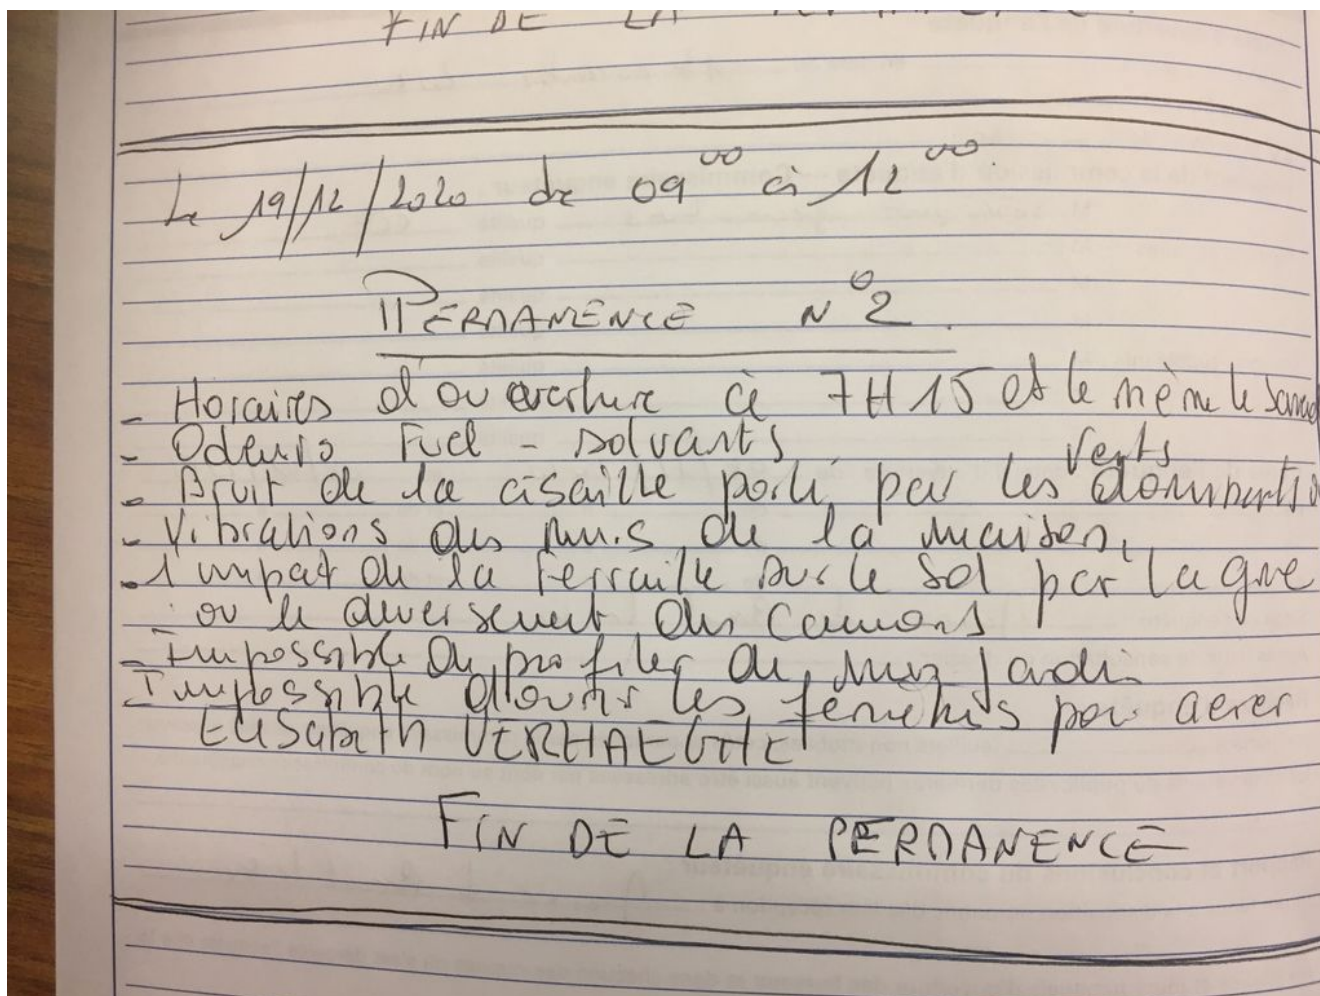 FIN DE LA
Le 19/12/2020 de 09 00 à 12 00.
PERMANENCE N°2.
- Horaires d'ouverture à 7H15 et le même le
- Odeurs Fuel - solvants
- Bruit de la cisaille porté par les vents
- Vibrations des murs de la maison,
- l'impat de la ferraille sur le sol par la grue
ou le diversement des camions
- Impossible de profiter de mon jardin
- Impossible d'ouvrir les fenêtres pour aerer
Elisabeth VERHAEGHE
FIN DE LA PERMANENCE